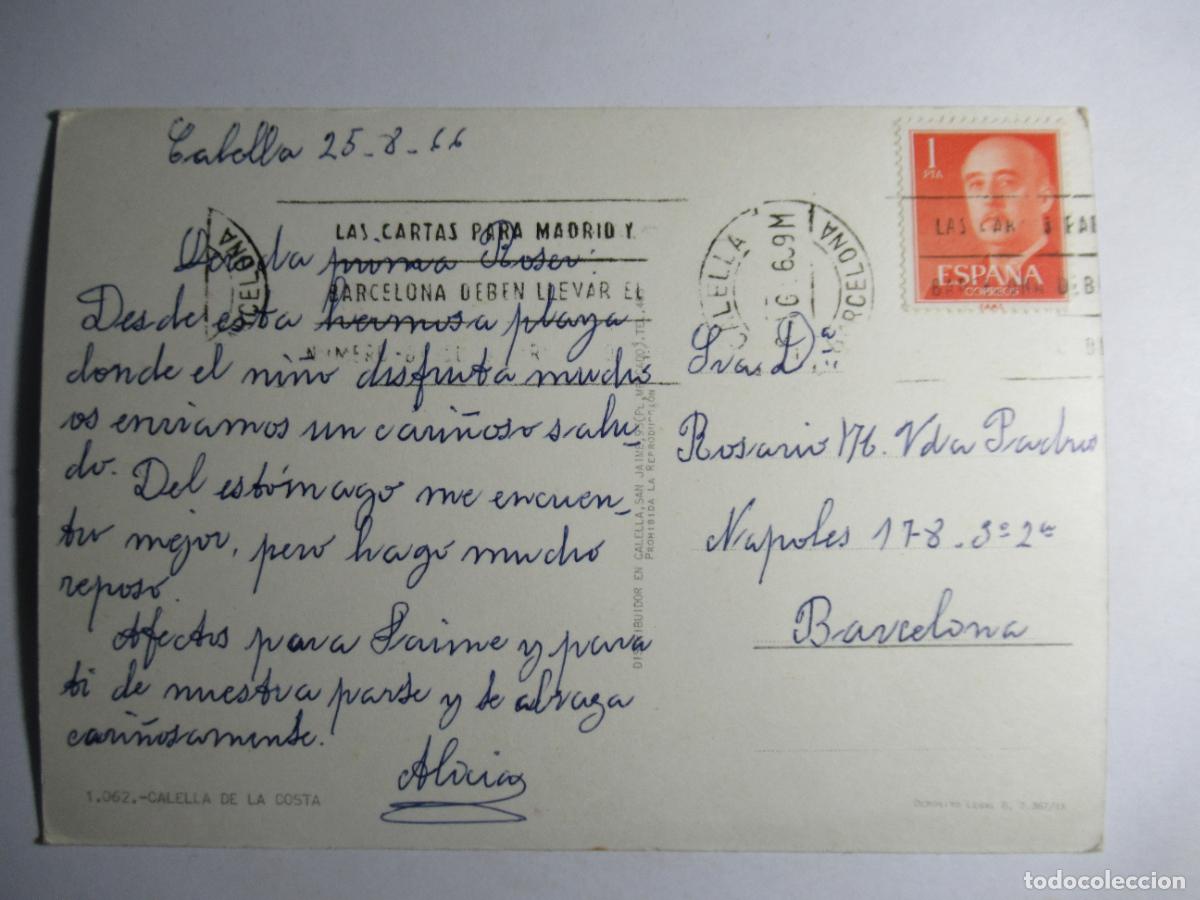 Calella 25-8-66
Querida prima Roser:
Desde esta hermosa playa
donde el niño disfruta mucho
os enviamos un cariñoso salu_
do. Del estómago me encuen_
tro mejor, pero hago mucho
reposo.
Afectos para Jaime y para
ti de nuestra parte y te abraza
cariñosamente.
Alicia
1.062.-CALELLA DE LA COSTA
LAS CARTAS PARA MADRID Y
BARCELONA DEBEN LLEVAR EL
NUMERO
BARCELONA
CALELLA
BARCELONA
1
PTA
ESPAÑA
CORREOS
LAS CAR S PAR
DEB
DISTRIBUIDOR EN CALELLA, SAN JAIME,
PROHIBIDA LA REPRODUCCIÓN
Sra. Dña
Rosario Vda
Napoles 178-3º2ª
Barcelona
DEPÓSITO LEGAL B.
todocoleccion